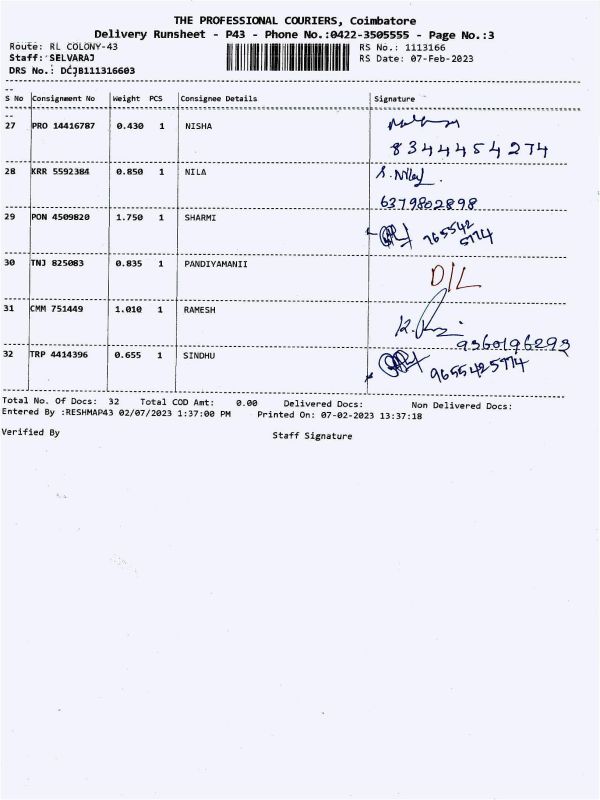 THE PROFESSIONAL COURIERS, Coimbatore
Delivery Runsheet - P43 - Phone No.:0422-3505555 - Page No.:3
Route: RL COLONY-43 RS No.: 1113166
Staff: SELVARAJ RS Date: 07-Feb-2023
DRS No.: DCJB111316603
S No Consignment No Weight PCS Consignee Details Signature
27 PRO 14416787 0.430 1 NISHA
8344454274
28 KRR 5592384 0.850 1 NILA S. Nila
6379802898
29 PON 4509820 1.750 1 SHARMI
30 TNJ 825083 0.835 1 PANDIYAMANII D/L
31 CMM 751449 1.010 1 RAMESH
9360196293
32 TRP 4414396 0.655 1 SINDHU
9655425774
Total No. Of Docs: 32 Total COD Amt: 0.00 Delivered Docs: Non Delivered Docs:
Entered By :RESHMAP43 02/07/2023 1:37:00 PM Printed On: 07-02-2023 13:37:18
Verified By Staff Signature